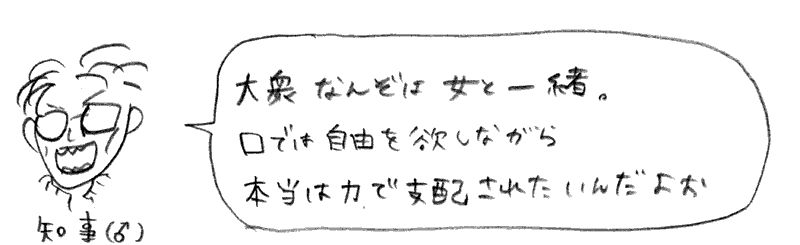 大衆なんぞは女と一緒。
口では自由を欲しながら
本当は力で支配されたいんだよお
知事(♂)